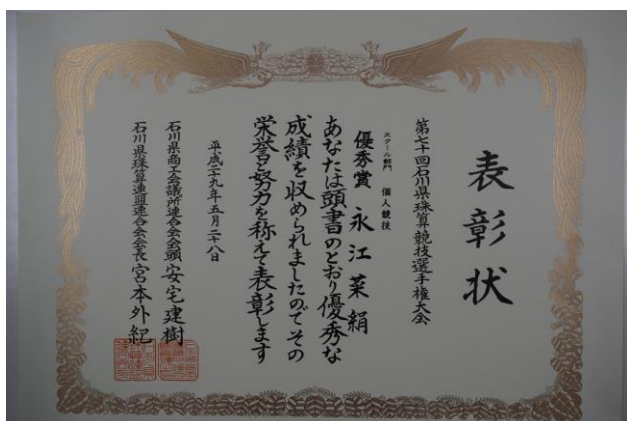 表彰状
第七十回石川県珠算競技選手権大会
スクール部門 個人競技
優秀賞 永江菜絹
あなたは頭書のとおり優秀な
成績を収められましたのでその
栄誉と努力を称えて表彰します
平成二十九年五月二十八日
石川県商工会議所連合会会頭 安宅建樹
石川県珠算連盟連合会会長 宮本外紀